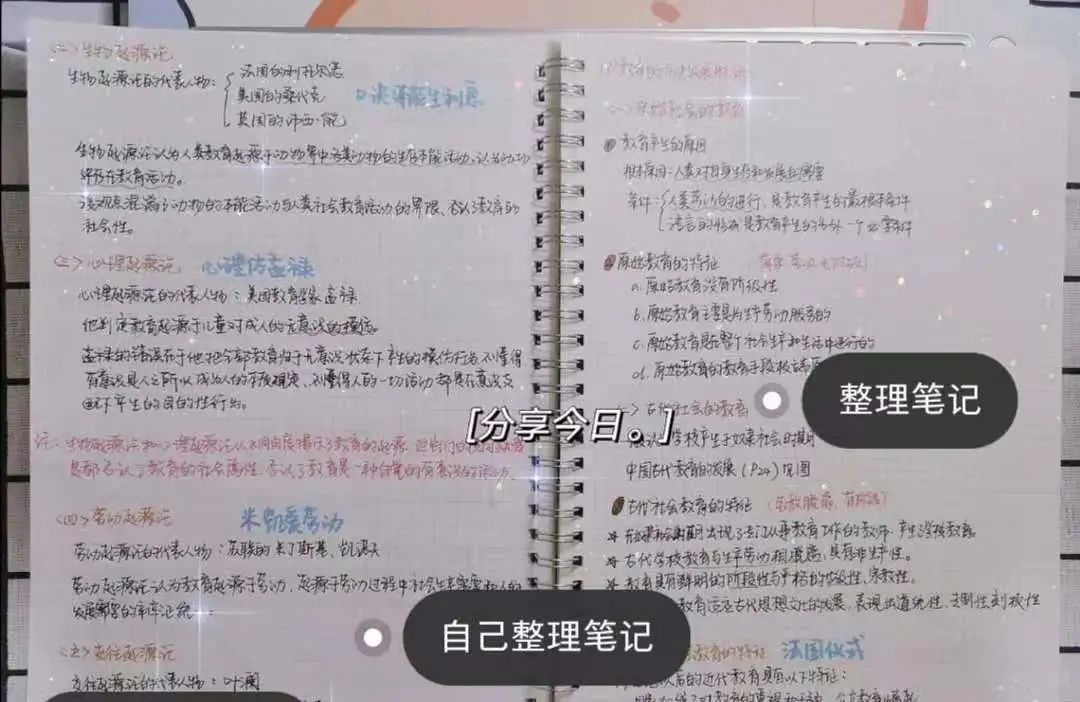 (二)生物起源论
生物起源论的代表人物:
法国的利托尔诺
美国的桑代克
英国的沛西·能
本沛能生利息
生物起源论认为人类教育起源于动物界中各类动物的生存本能活动,认为动物
界存在教育活动。
该观点混淆了动物的本能活动与人类社会教育活动的界限,否认了教育的
社会性。
(三)心理起源论 心理仿孟禄
心理起源论的代表人物:美国教育学家孟禄
他判定教育起源于儿童对成人的无意识的模仿。
孟禄的错误在于他把全部教育归于无意识状态下产生的模仿行为,不懂得
有意识是人之所以成为人的本质规定,不懂得人的一切活动都是在意识支
配下产生的目的性行为。
注:生物起源论和心理起源论从不同角度揭示了教育的起源,但它们的共同缺陷
是都否认了教育的社会属性,否认了教育是一种自觉的有意识的活动。
(四)劳动起源论 米凯爱劳动
劳动起源论的代表人物:苏联的米丁斯基、凯洛夫
劳动起源论认为教育起源于劳动,起源于劳动过程中社会生产需要和人的
发展需要的辩证统一
(五)交往起源论
交往起源论的代表人物:叶澜
教育的历史发展
(一)原始社会的教育
教育产生的原因
根本原因:人类对自身生存和发展的需要
条件:
人类劳动的进行,是教育产生的最根本条件
语言的形成是教育产生的另外一个必要条件
原始教育的特征
a.原始教育没有阶级性
b.原始教育主要是为生产劳动服务的
c.原始教育是在整个社会生产和生活中进行的
d.原始教育的教育手段极端
整理笔记
[分享今日。]
古代社会的教育
学校产生于奴隶社会时期
中国古代教育的发展(P24)见图
古代社会教育的特征
出现了专门从事教育工作的教师,产生学校教育。
古代学校教育与生产劳动相脱离,具有非生产性。
教育具有鲜明的阶级性与严格的等级性、宗教性。
教育适应古代思想文化的发展,表现出道统性、专制性、刻板性
自己整理笔记
教育的特征 法国仪式
以后的近代教育具有以下特征: